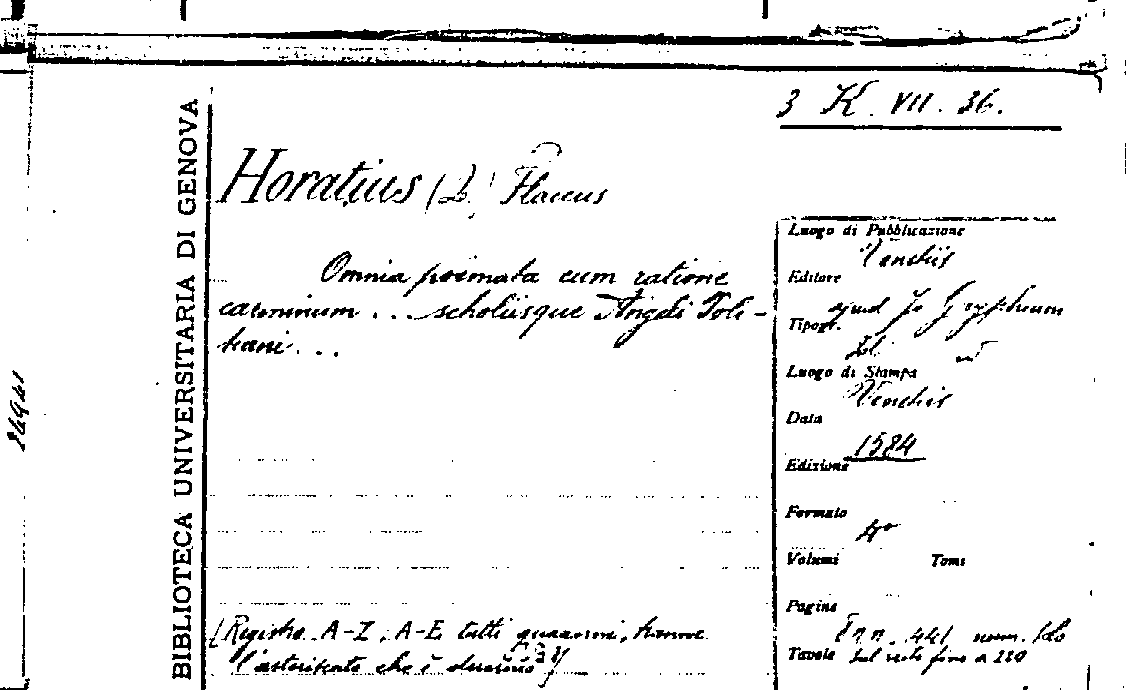 3 K. VII. 36.
BIBLIOTECA UNIVERSITARIA DI GENOVA
Horatius ( ) Flaccus
Omnia poemata cum ratione
carminum ... scholiisque Angeli Poli-
tiani ...
Luogo di Pubblicazione
Venetiis
Editore
apud Jo Gryphium
Tipogr.
Id.
Luogo di Stampa
Venetiis
Data
1584
Edizione
Formato
4°
Volumi Tomi
Pagine
441 num.
Tavole sul recto fino a
[Registro A-Z, A-E tutti quaderni, tranne
l'asteriscato che è duerno]